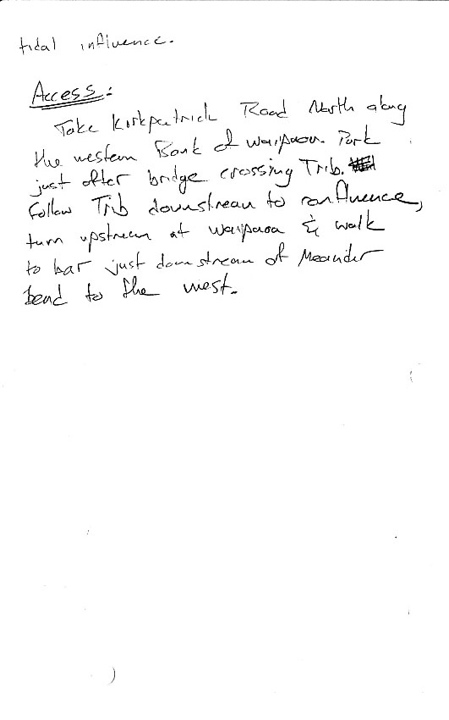 tidal influence.
Access:
Take Kirkpatrick Road North along
the western Bank of Waipaoa. Park
just after bridge crossing Trib.
Follow Trib downstream to confluence,
turn upstream at Waipaoa & walk
to bar just downstream of Meander
bend to the west.